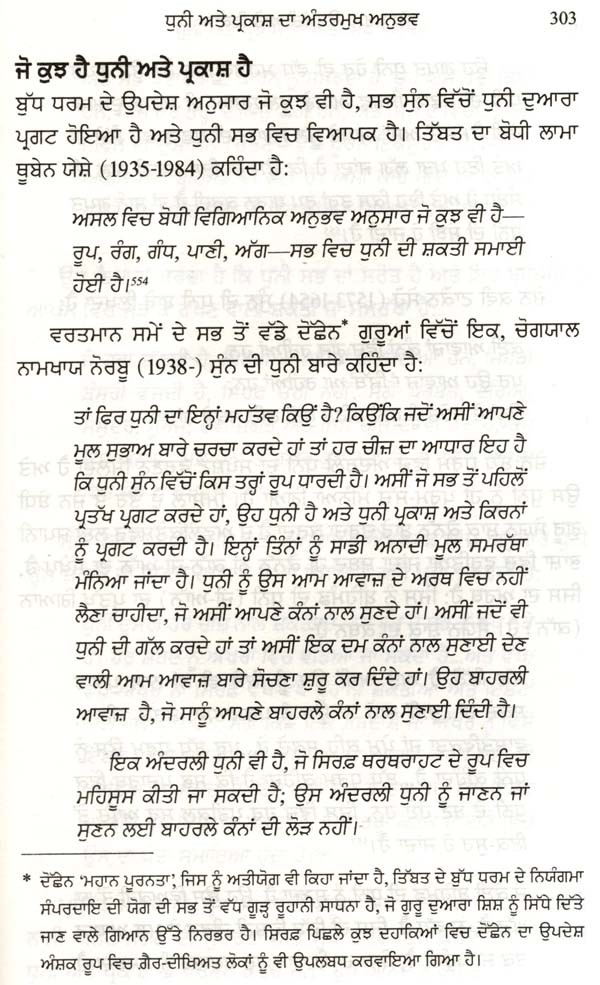 ਧੁਨੀ ਅਤੇ ਪ੍ਰਕਾਸ਼ ਦਾ ਅੰਤਰਮੁਖ ਅਨੁਭਵ 303
ਜੋ ਕੁਝ ਹੈ ਧੁਨੀ ਅਤੇ ਪ੍ਰਕਾਸ਼ ਹੈ
ਬੁੱਧ ਧਰਮ ਦੇ ਉਪਦੇਸ਼ ਅਨੁਸਾਰ ਜੋ ਕੁਝ ਵੀ ਹੈ, ਸਭ ਸੁੰਨ ਵਿੱਚੋਂ ਧੁਨੀ ਦੁਆਰਾ
ਪ੍ਰਗਟ ਹੋਇਆ ਹੈ ਅਤੇ ਧੁਨੀ ਸਭ ਵਿਚ ਵਿਆਪਕ ਹੈ। ਤਿੱਬਤ ਦਾ ਬੋਧੀ ਲਾਮਾ
ਥੂਬੇਨ ਯੇਸ਼ੇ (1935-1984) ਕਹਿੰਦਾ ਹੈ:
ਅਸਲ ਵਿਚ ਬੋਧੀ ਵਿਗਿਆਨਿਕ ਅਨੁਭਵ ਅਨੁਸਾਰ ਜੋ ਕੁਝ ਵੀ ਹੈ—
ਰੂਪ, ਰੰਗ, ਗੰਧ, ਪਾਣੀ, ਅੱਗ—ਸਭ ਵਿਚ ਧੁਨੀ ਦੀ ਸ਼ਕਤੀ ਸਮਾਈ
ਹੋਈ ਹੈ।554
ਵਰਤਮਾਨ ਸਮੇਂ ਦੇ ਸਭ ਤੋਂ ਵੱਡੇ ਦੋਂਛੇਨ* ਗੁਰੂਆਂ ਵਿੱਚੋਂ ਇਕ, ਚੋਗਯਾਲ
ਨਾਮਖਾਯ ਨੋਰਬੂ (1938-) ਸੁੰਨ ਦੀ ਧੁਨੀ ਬਾਰੇ ਕਹਿੰਦਾ ਹੈ:
ਤਾਂ ਫਿਰ ਧੁਨੀ ਦਾ ਇਨ੍ਹਾਂ ਮਹੱਤਵ ਕਿਉਂ ਹੈ? ਕਿਉਂਕਿ ਜਦੋਂ ਅਸੀਂ ਆਪਣੇ
ਮੂਲ ਸੁਭਾਅ ਬਾਰੇ ਚਰਚਾ ਕਰਦੇ ਹਾਂ ਤਾਂ ਹਰ ਚੀਜ਼ ਦਾ ਆਧਾਰ ਇਹ ਹੈ
ਕਿ ਧੁਨੀ ਸੁੰਨ ਵਿੱਚੋਂ ਕਿਸ ਤਰ੍ਹਾਂ ਰੂਪ ਧਾਰਦੀ ਹੈ। ਅਸੀਂ ਜੋ ਸਭ ਤੋਂ ਪਹਿਲੋਂ
ਪ੍ਰਤੱਖ ਪ੍ਰਗਟ ਕਰਦੇ ਹਾਂ, ਉਹ ਧੁਨੀ ਹੈ ਅਤੇ ਧੁਨੀ ਪ੍ਰਕਾਸ਼ ਅਤੇ ਕਿਰਨਾਂ
ਨੂੰ ਪ੍ਰਗਟ ਕਰਦੀ ਹੈ। ਇਨ੍ਹਾਂ ਤਿੰਨਾਂ ਨੂੰ ਸਾਡੀ ਅਨਾਦੀ ਮੂਲ ਸਮਰੱਥਾ
ਮੰਨਿਆ ਜਾਂਦਾ ਹੈ। ਧੁਨੀ ਨੂੰ ਉਸ ਆਮ ਆਵਾਜ਼ ਦੇ ਅਰਥ ਵਿਚ ਨਹੀਂ
ਲੈਣਾ ਚਾਹੀਦਾ, ਜੋ ਅਸੀਂ ਆਪਣੇ ਕੰਨਾਂ ਨਾਲ ਸੁਣਦੇ ਹਾਂ। ਅਸੀਂ ਜਦੋਂ ਵੀ
ਧੁਨੀ ਦੀ ਗੱਲ ਕਰਦੇ ਹਾਂ ਤਾਂ ਅਸੀਂ ਇਕ ਦਮ ਕੰਨਾਂ ਨਾਲ ਸੁਣਾਈ ਦੇਣ
ਵਾਲੀ ਆਮ ਆਵਾਜ਼ ਬਾਰੇ ਸੋਚਣਾ ਸ਼ੁਰੂ ਕਰ ਦਿੰਦੇ ਹਾਂ। ਉਹ ਬਾਹਰਲੀ
ਆਵਾਜ਼ ਹੈ, ਜੋ ਸਾਨੂੰ ਆਪਣੇ ਬਾਹਰਲੇ ਕੰਨਾਂ ਨਾਲ ਸੁਣਾਈ ਦਿੰਦੀ ਹੈ।
ਇਕ ਅੰਦਰਲੀ ਧੁਨੀ ਵੀ ਹੈ, ਜੋ ਸਿਰਫ਼ ਥਰਥਰਾਹਟ ਦੇ ਰੂਪ ਵਿਚ
ਮਹਿਸੂਸ ਕੀਤੀ ਜਾ ਸਕਦੀ ਹੈ; ਉਸ ਅੰਦਰਲੀ ਧੁਨੀ ਨੂੰ ਜਾਣਨ ਜਾਂ
ਸੁਣਨ ਲਈ ਬਾਹਰਲੇ ਕੰਨਾਂ ਦੀ ਲੋੜ ਨਹੀਂ।
* ਦੋਂਛੇਨ ‘ਮਹਾਨ ਪੂਰਨਤਾ’, ਜਿਸ ਨੂੰ ਅਤੀਯੋਗ ਵੀ ਕਿਹਾ ਜਾਂਦਾ ਹੈ, ਤਿੱਬਤ ਦੇ ਬੁੱਧ ਧਰਮ ਦੇ ਨਿਯੰਗਮਾ
ਸੰਪਰਦਾਇ ਦੀ ਯੋਗ ਦੀ ਸਭ ਤੋਂ ਵੱਧ ਗੂੜ੍ਹ ਰੂਹਾਨੀ ਸਾਧਨਾ ਹੈ, ਜੋ ਗੁਰੂ ਦੁਆਰਾ ਸ਼ਿਸ਼ ਨੂੰ ਸਿੱਧੇ ਦਿੱਤੇ
ਜਾਣ ਵਾਲੇ ਗਿਆਨ ਉੱਤੇ ਨਿਰਭਰ ਹੈ। ਸਿਰਫ਼ ਪਿਛਲੇ ਕੁਝ ਦਹਾਕਿਆਂ ਵਿਚ ਦੋਂਛੇਨ ਦਾ ਉਪਦੇਸ਼
ਅੰਸ਼ਕ ਰੂਪ ਵਿਚ ਗ਼ੈਰ-ਦੀਖਿਅਤ ਲੋਕਾਂ ਨੂੰ ਵੀ ਉਪਲਬਧ ਕਰਵਾਇਆ ਗਿਆ ਹੈ।